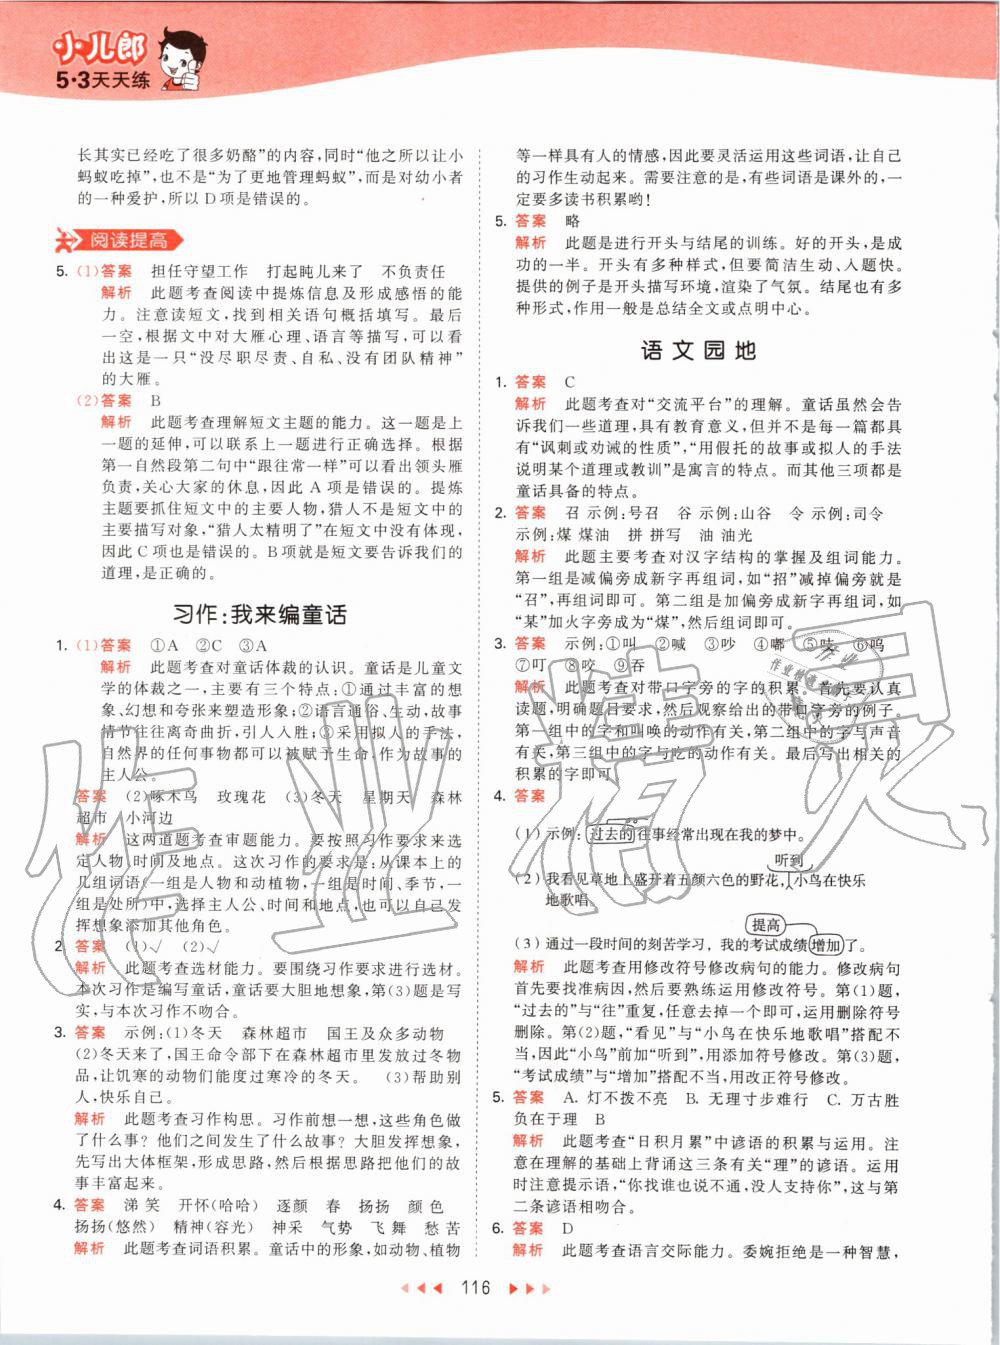 小儿郎
5·3天天练
长其实已经吃了很多奶酪”的内容,同时“他之所以让小
蚂蚁吃掉”,也不是“为了更地管理蚂蚁”,而是对幼小者
的一种爱护,所以 D 项是错误的。
阅读提高
5. (1)答案 担任守望工作 打起盹儿来了 不负责任
解析 此题考查阅读中提炼信息及形成感悟的能
力。注意读短文,找到相关语句概括填写。最后
一空,根据文中对大雁心理、语言等描写,可以看
出这是一只“没尽职尽责、自私、没有团队精神”
的大雁。
(2)答案 B
解析 此题考查理解短文主题的能力。这一题是上
一题的延伸,可以联系上一题进行正确选择。根据
第一自然段第二句中“跟往常一样”可以看出领头雁
负责,关心大家的休息,因此 A 项是错误的。提炼
主题要抓住短文中的主要人物,猎人不是短文中的
主要描写对象,“猎人太精明了”在短文中没有体现,
因此 C 项也是错误的。B 项就是短文要告诉我们的
道理,是正确的。
习作:我来编童话
1. (1)答案 ①A ②C ③A
解析 此题考查对童话体裁的认识。童话是儿童文
学的体裁之一,主要有三个特点:①通过丰富的想
象、幻想和夸张来塑造形象;②语言通俗、生动,故事
情节往往离奇曲折,引人入胜;③采用拟人的手法,
自然界的任何事物都可以被赋予生命,作为故事的
主人公。
答案 (2)啄木鸟 玫瑰花 (3)冬天 星期天 森林
超市 小河边
解析 这两道题考查审题能力。要按照习作要求选
定人物、时间及地点。这次习作的要求是:从课本上的
几组词语(一组是人物和动植物,一组是时间、季节,一
组是处所)中,打乱顺序任意组合,也可以自己发
挥想象添加其他角色。
2. 答案 (1)√ (2)√
解析 此题考查选材能力。要围绕习作要求进行选材。
本次习作是编写童话,童话要大胆地想象,第(3)题是写
实,与本次习作不吻合。
3. 答案 示例:(1)冬天 森林超市 国王及众多动物
(2)冬天来了,国王命令部下在森林超市里发放过冬物
品,让饥寒的动物们能度过寒冷的冬天。 (3)帮助别
人,快乐自己。
解析 此题考查习作构思。习作前想一想,这些角色做
了什么事?他们之间发生了什么故事?大胆发挥想象,
先写出大体框架,形成思路,然后让我们笔下的童话故
事丰富起来。
4. 答案 涕 笑 开怀(哈哈) 逐颜 春 扬扬 颜 色
扬扬(悠然) 精神(容光) 神采 气势 飞 舞 愁 苦
解析 此题考查词语积累。童话中的形象,如动物、植物
等一样具有人的情感,因此要灵活运用这些词语,让我们
的习作生动起来。需要注意的是,有些词语是课外的,一
定要多读书积累哟!
5. 答案 略
解析 此题是进行开头与结尾的训练。好的开头,是成
功的一半。开头有多种样式,但要简洁生动、入题快。
提供的例子是开头描写环境,渲染了气氛。结尾也有多
种形式,作用一般是总结全文或点明中心。
语文园地
1. 答案 C
解析 此题考查对“交流平台”的理解。童话虽然会告
诉我们一些道理,具有教育意义,但并不是每一篇都具
有“讽刺或劝诫的性质”,“用假托的故事或拟人的手法
说明某个道理或教训”是寓言的特点。而其他三项都是
童话具备的特点。
2. 答案 召 示例:号召 谷 示例:山谷 令 示例:司令
示例:煤 煤油 拼 拼写 油 油光
解析 此题主要考查对汉字结构的掌握及组词能力。
第一组是减偏旁成新字再组词,如“招”减掉偏旁就是
“召”,再组词即可。第二组是加偏旁成新字再组词,如
“某”加火字旁成为“煤”,然后组词即可。
3. 答案 示例:①叫 ②喊 ③吵 ④嘟 ⑤吱 ⑥呜
⑦叮 ⑧咬 ⑨吞
解析 此题考查对带口字旁的字的积累。首先要认真
读题,明确题目要求,然后观察给出的带口字旁的例子。
第一组中的字和叫唤的动作有关,第二组中的字与声音
有关,第三组中的字与吃的动作有关。最后写出相关的
积累的字即可。
4. 答案
(1) 示例:过去的往事经常出现在我的梦中。
听到
(2) 我看见草地上盛开着五颜六色的野花,小鸟在快乐
地歌唱。
提高
(3) 通过一段时间的刻苦学习,我的考试成绩增加了。
解析 此题考查用修改符号修改病句的能力。修改病句
首先要找准病因,然后要熟练运用修改符号。第(1)题,
“过去的”与“往”重复,任意去掉一个即可,运用删除符号
删除。第(2)题,“看见”与“小鸟在快乐地歌唱”搭配不
当,因此“小鸟”前加“听到”,用添加符号修改。第(3)题,
“考试成绩”与“增加”搭配不当,用改正符号修改。
5. 答案 A. 灯不拨不亮 B. 无理寸步难行 C. 万古胜
负在于理 B
解析 此题考查“日积月累”中谚语的积累与运用。注
意在理解的基础上背诵这三条有关“理”的谚语。运用
时注意提示语,“你找谁也说不通,没人支持你”,这与第
二条谚语相吻合。
6. 答案 D
解析 此题考查语言交际能力。委婉拒绝是一种智慧,
116
作业精灵